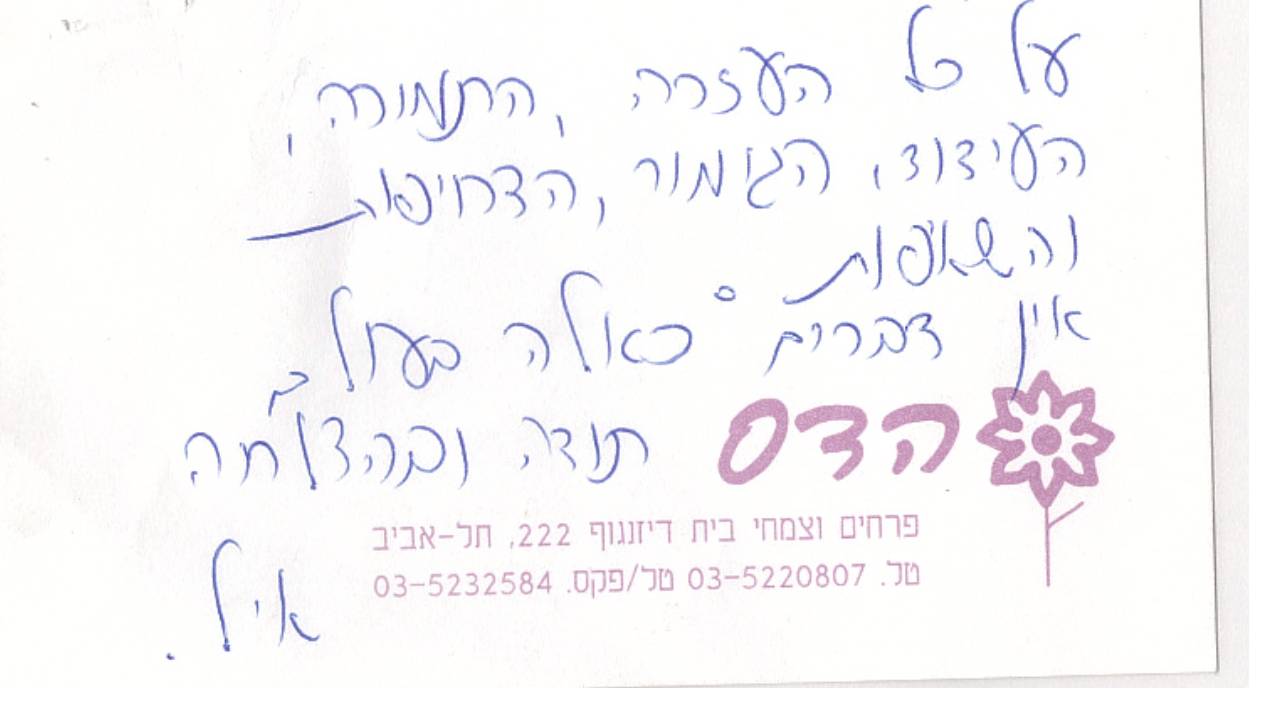 על כל העזרה, התמורה,
העידוד, הגימור, הדחיפות
והשאיפות
אין דברים כאלה בעולם
תודה ובהצלחה
הדס
פרחים וצמחי בית דיזנגוף 222, תל-אביב
טל. 03-5220807 טל/פקס. 03-5232584
איל.